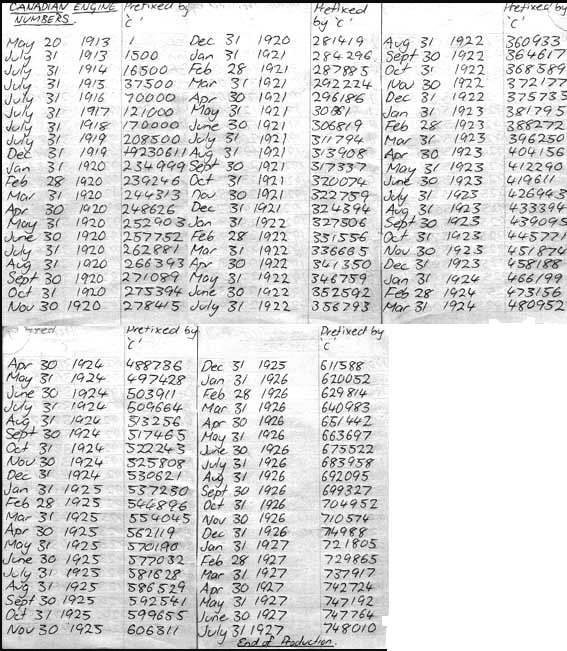 CANADIAN ENGINE NUMBERS. Prefixed by 'C'
May 20 1913 1
July 31 1913 1500
July 31 1914 16500
July 31 1915 37500
July 31 1916 70000
July 31 1917 121000
July 31 1918 170000
July 31 1919 208500
Dec 31 1919
Jan 31 1920 234999
Feb 28 1920 239246
Mar 31 1920 244313
Apr 30 1920 248626
May 31 1920 252903
June 30 1920 257752
July 31 1920 262881
Aug 31 1920 266393
Sept 30 1920 271089
Oct 31 1920 275394
Nov 30 1920 278415
Prefixed by 'C'
Dec 31 1920 281419
Jan 31 1921 284296
Feb 28 1921 287885
Mar 31 1921 292224
Apr 30 1921 296186
May 31 1921
June 30 1921 306819
July 31 1921 311794
Aug 31 1921 313908
Sept 30 1921 317337
Oct 31 1921 320074
Nov 30 1921 322759
Dec 31 1921 324394
Jan 31 1922 327506
Feb 28 1922 331556
Mar 31 1922 336665
Apr 30 1922 341350
May 31 1922 346759
June 30 1922 352592
July 31 1922 356793
Prefixed by 'C'
Aug 31 1922 360933
Sept 30 1922 364617
Oct 31 1922 368589
Nov 30 1922 372177
Dec 31 1922 375735
Jan 31 1923 381795
Feb 28 1923 388272
Mar 31 1923 396250
Apr 30 1923 404156
May 31 1923 412290
June 30 1923 419611
July 31 1923 426943
Aug 31 1923 433394
Sept 30 1923 439095
Oct 31 1923 445771
Nov 30 1923 451874
Dec 31 1923 458188
Jan 31 1924 466199
Feb 28 1924 473156
Mar 31 1924 480952
Prefixed by 'C'
Apr 30 1924 488736
May 31 1924 497428
June 30 1924 503911
July 31 1924 509664
Aug 31 1924 513256
Sept 30 1924 517465
Oct 31 1924 522243
Nov 30 1924 525808
Dec 31 1924 530621
Jan 31 1925 537230
Feb 28 1925 544896
Mar 31 1925 554045
Apr 30 1925 562119
May 31 1925 570190
June 30 1925 577032
July 31 1925 581628
Aug 31 1925 586529
Sept 30 1925 592541
Oct 31 1925 599655
Nov 30 1925 606311
Prefixed by 'C'
Dec 31 1925 611588
Jan 31 1926 620052
Feb 28 1926 629814
Mar 31 1926 640983
Apr 30 1926 651442
May 31 1926 663697
June 30 1926 675522
July 31 1926 683958
Aug 31 1926 692095
Sept 30 1926 699327
Oct 31 1926 704952
Nov 30 1926 710574
Dec 31 1926 714988
Jan 31 1927 721805
Feb 28 1927 729865
Mar 31 1927 737917
Apr 30 1927 742724
May 31 1927 747192
June 30 1927 747764
July 31 1927 748010
End of Production.